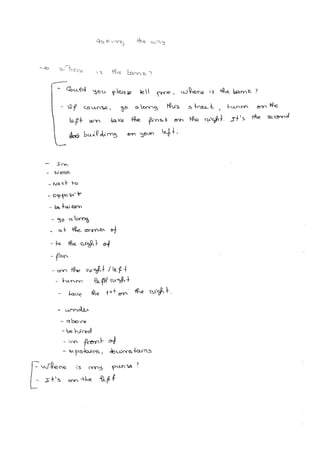 Asking the way
→ Where is the bank?
- Could you please tell me, where is the bank?
- Of course, go along this street, turn on the
left an take the first on the right. It's the second
building on your left.
- In
- Near
- Next to
- Opposite
- between
- go along
- at the corner of
- to the right of
- far
- on the right / left
- turn left/right
- take the 1st on the right.
- under
- above
- behind
- in front of
- upstairs, downstairs
- Where is my purse?
- It's on the left